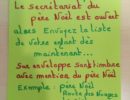 Le Secrétariat du
père Noël est ouvert
alors Envoyez la liste
de votre enfant dès
maintenant...
Sur enveloppe sans timbre
avec mention du père Noël
Exemple : père Noël
Route des Nuages